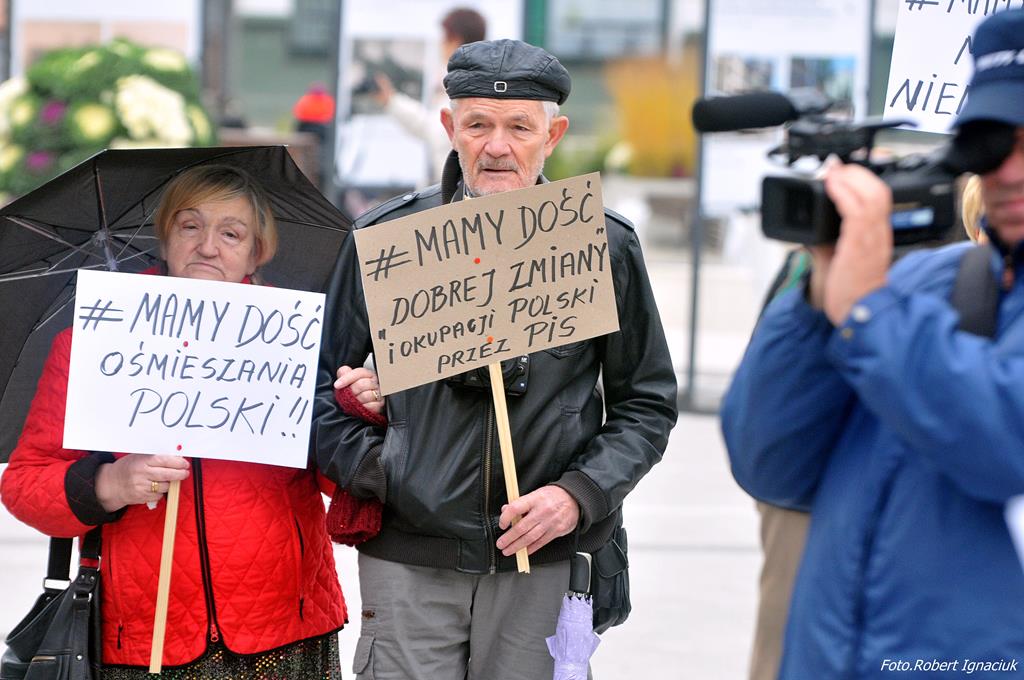 # MAMY DOŚĆ
OŚMIESZANIA
POLSKI!!
# MAMY DOŚĆ
"DOBREJ ZMIANY"
I OKUPACJI POLSKI
PRZEZ PIS
# MAMY
NIE
Foto.Robert Ignaciuk